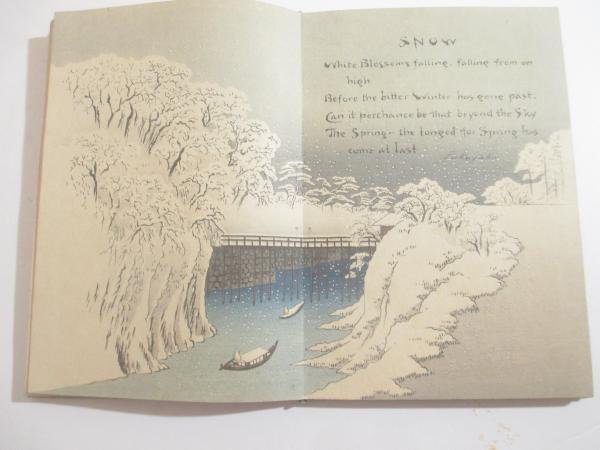 SNOW
White Blossoms falling, falling from on
high
Before the bitter Winter has gone past.
Can it perchance be that beyond the Sky
The Spring - the longed for Spring has
come at last